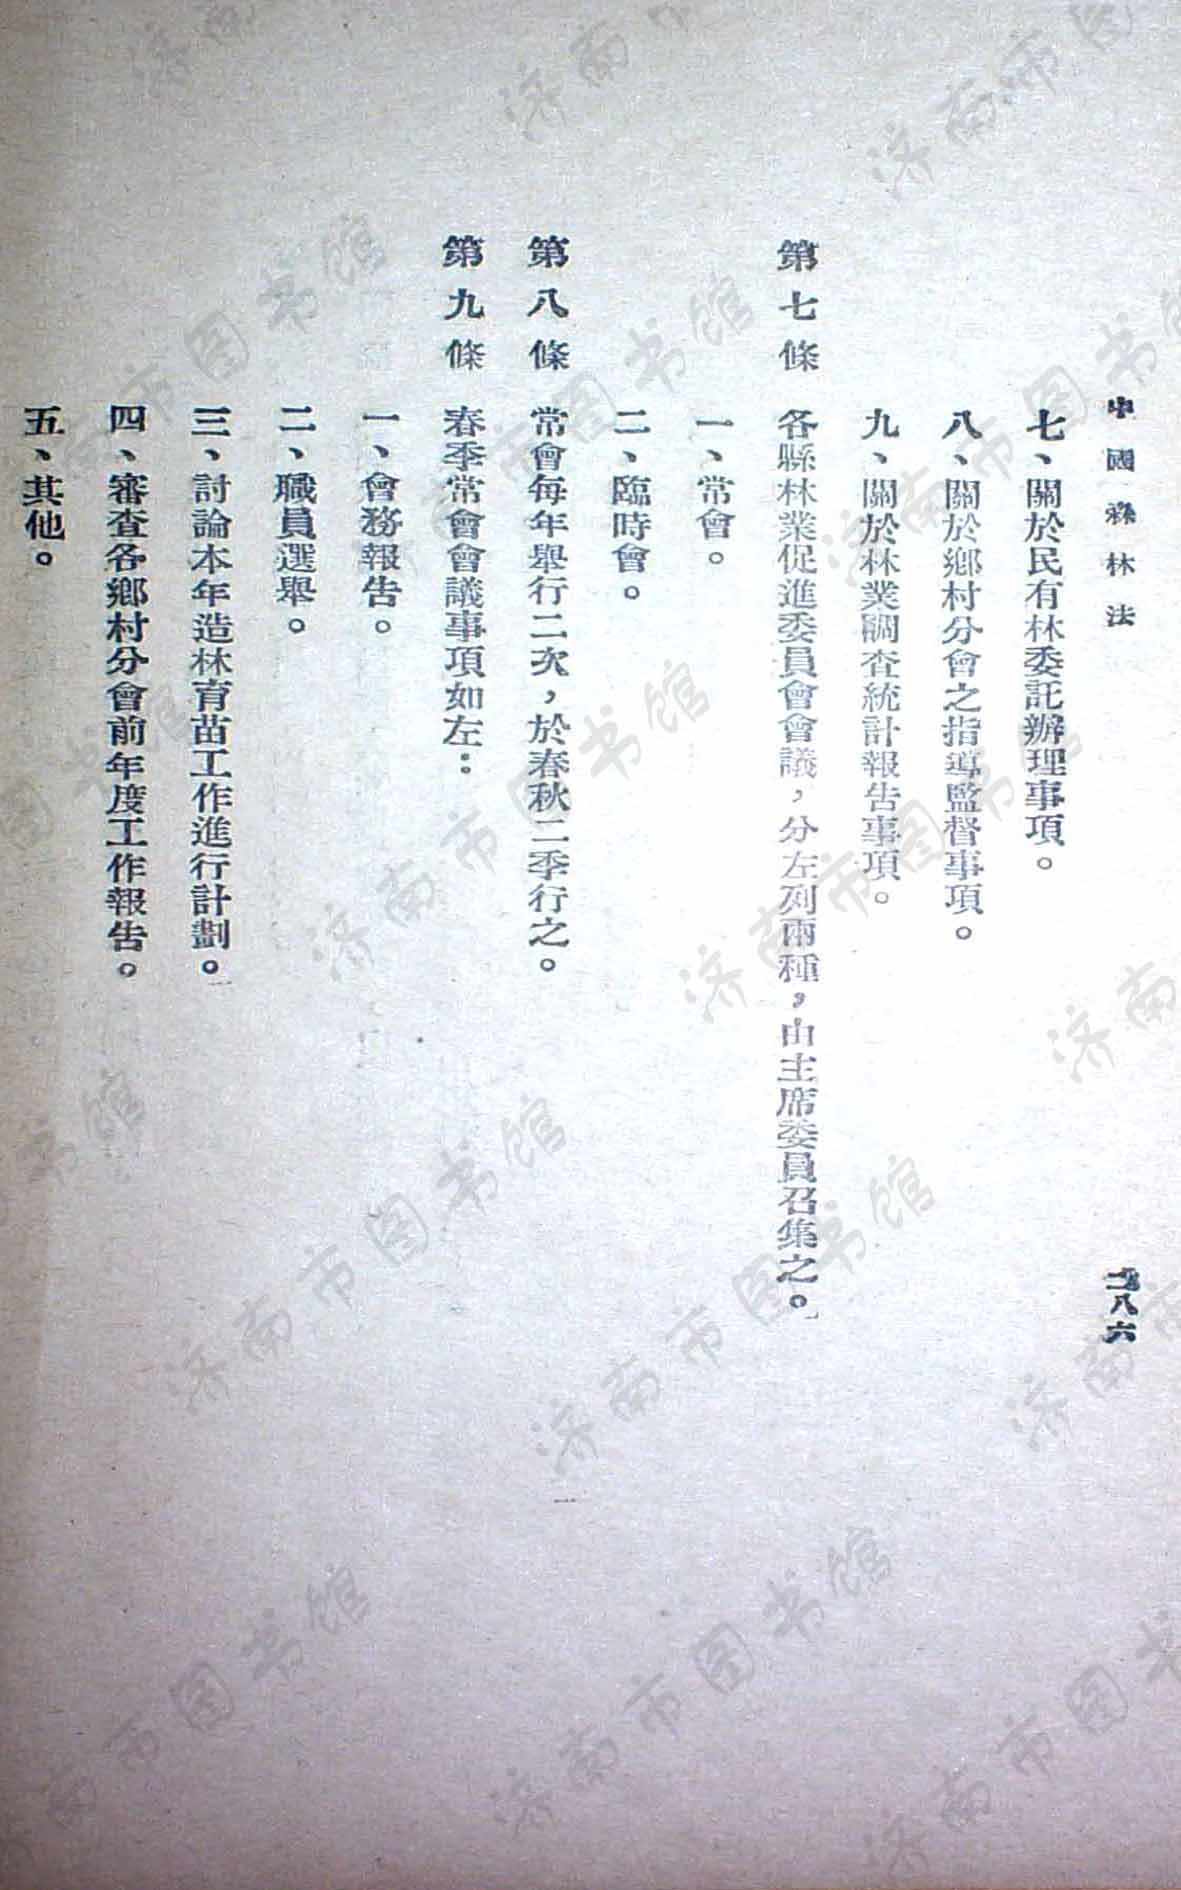 中國森林法
七、關於民有林委託辦理事項。
八、關於鄉村分會之指導監督事項。
九、關於林業調查統計報告事項。
第七條 各縣林業促進委員會會議，分左列兩種，由主席委員召集之。
一、常會。
二、臨時會。
第八條 常會每年舉行二次，於春秋二季行之。
第九條 春季常會會議事項如左：
一、會務報告。
二、職員選舉。
三、討論本年造林育苗工作進行計劃。
四、審查各鄉村分會前年度工作報告。
五、其他。
八六
济南市图书馆